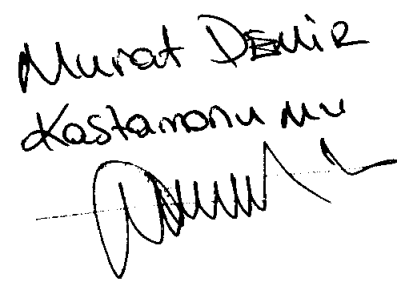 Murat DEMİR
Kastamonu MV